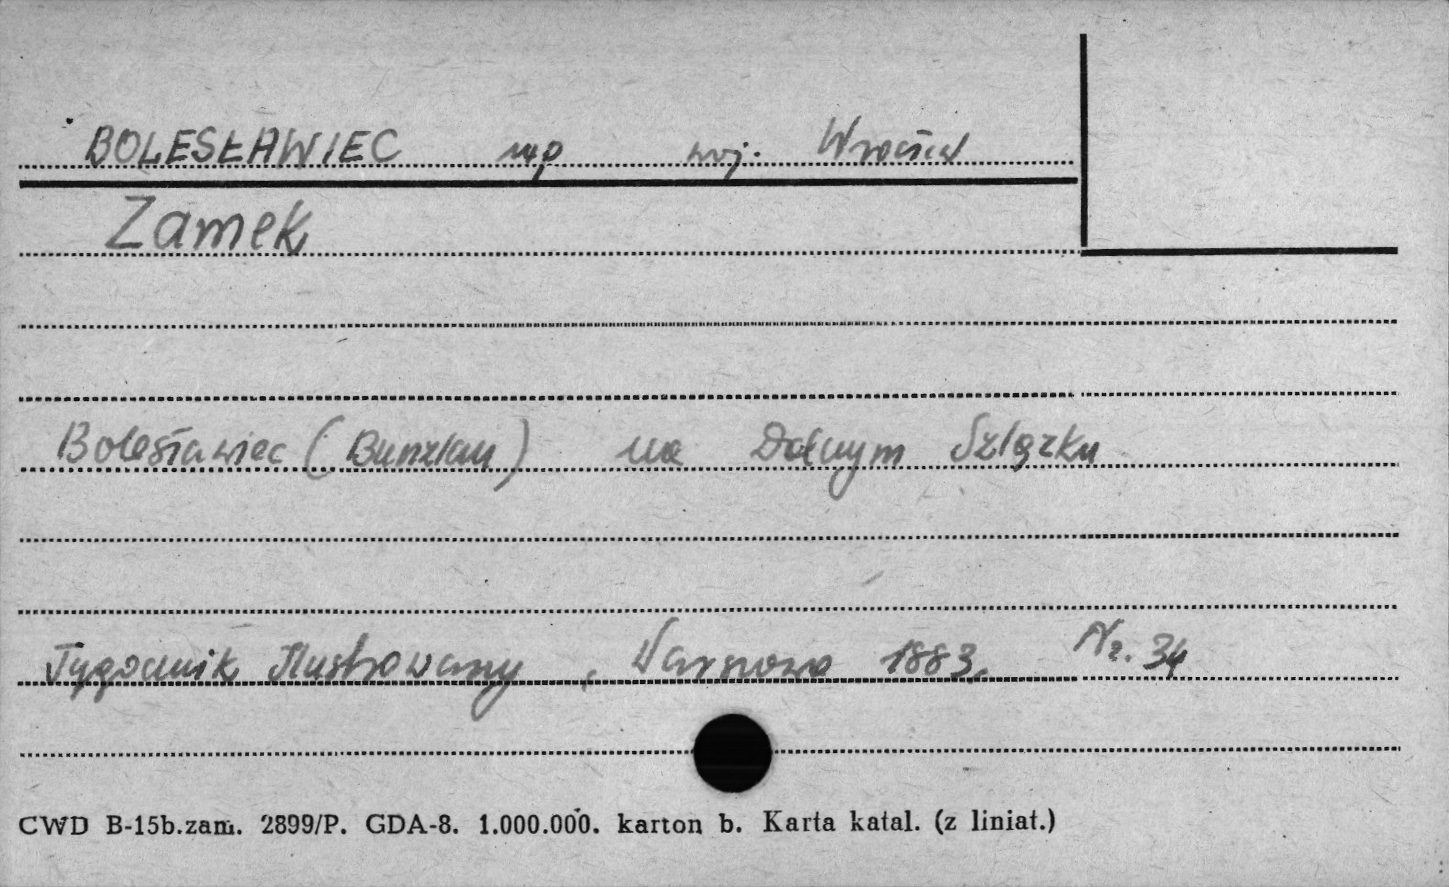 BOLESŁAWIEC mp woj. Wrocław
Zamek
Bolesławiec (Bunzlau) na Dolnym Szlązku
Tygodnik Ilustrowany, Warszawa 1883. Nr. 34
CWD B-15b.zam. 2899/P. GDA-8. 1.000.000. karton b. Karta katal. (z liniat.)